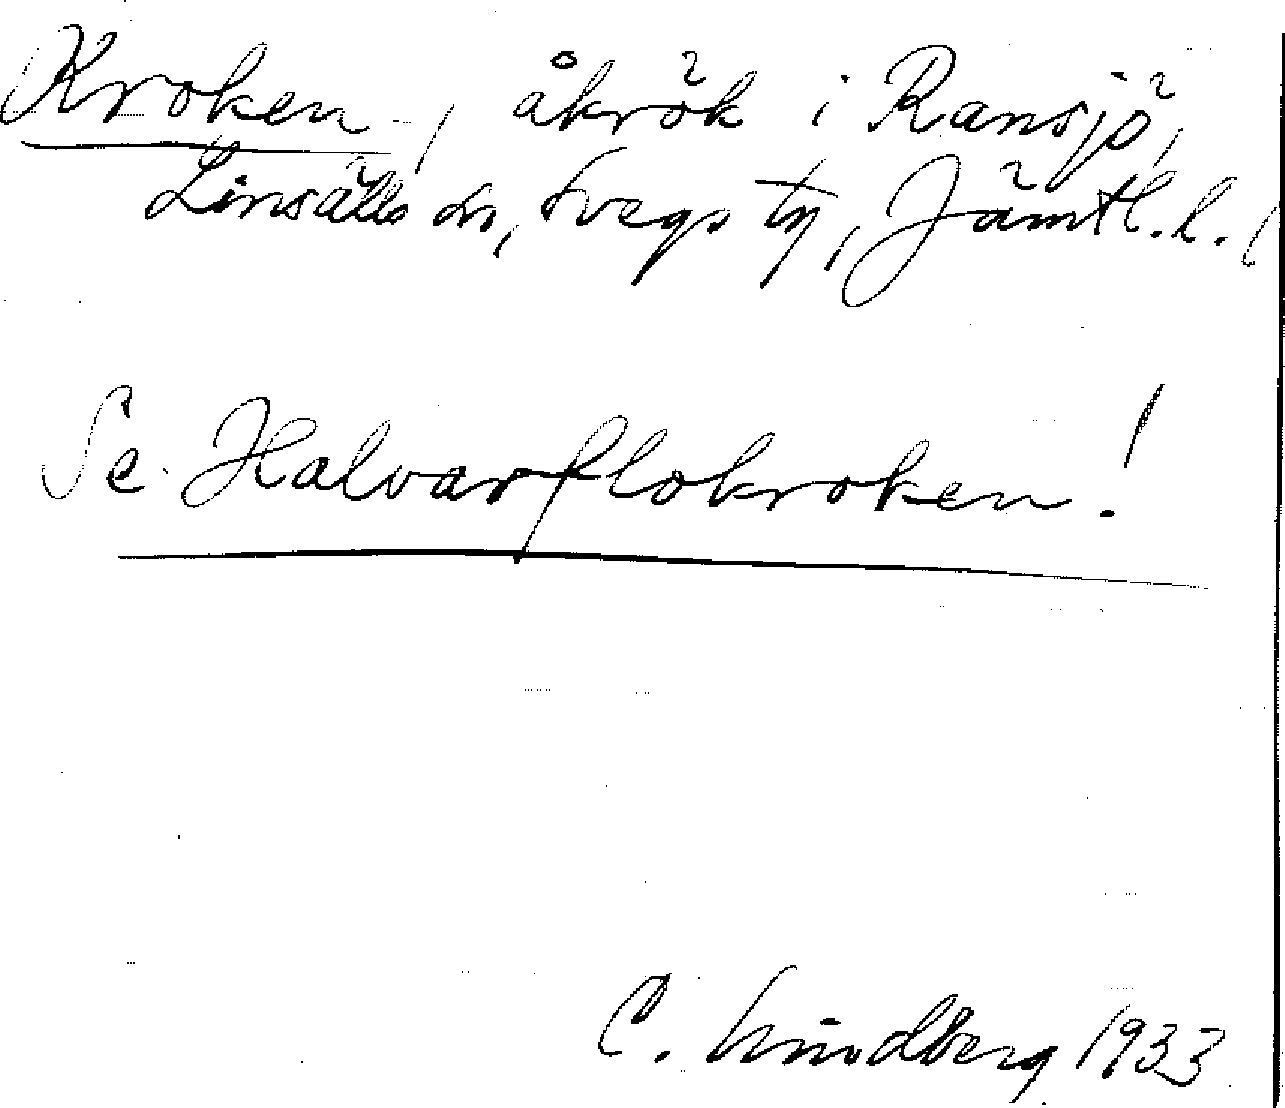 Kroken, åkrök i Ransjö,
Linsälls sn, Svegs tg, Jämtl. l.
Se Halvarflokroken!
C. Lindberg 1933